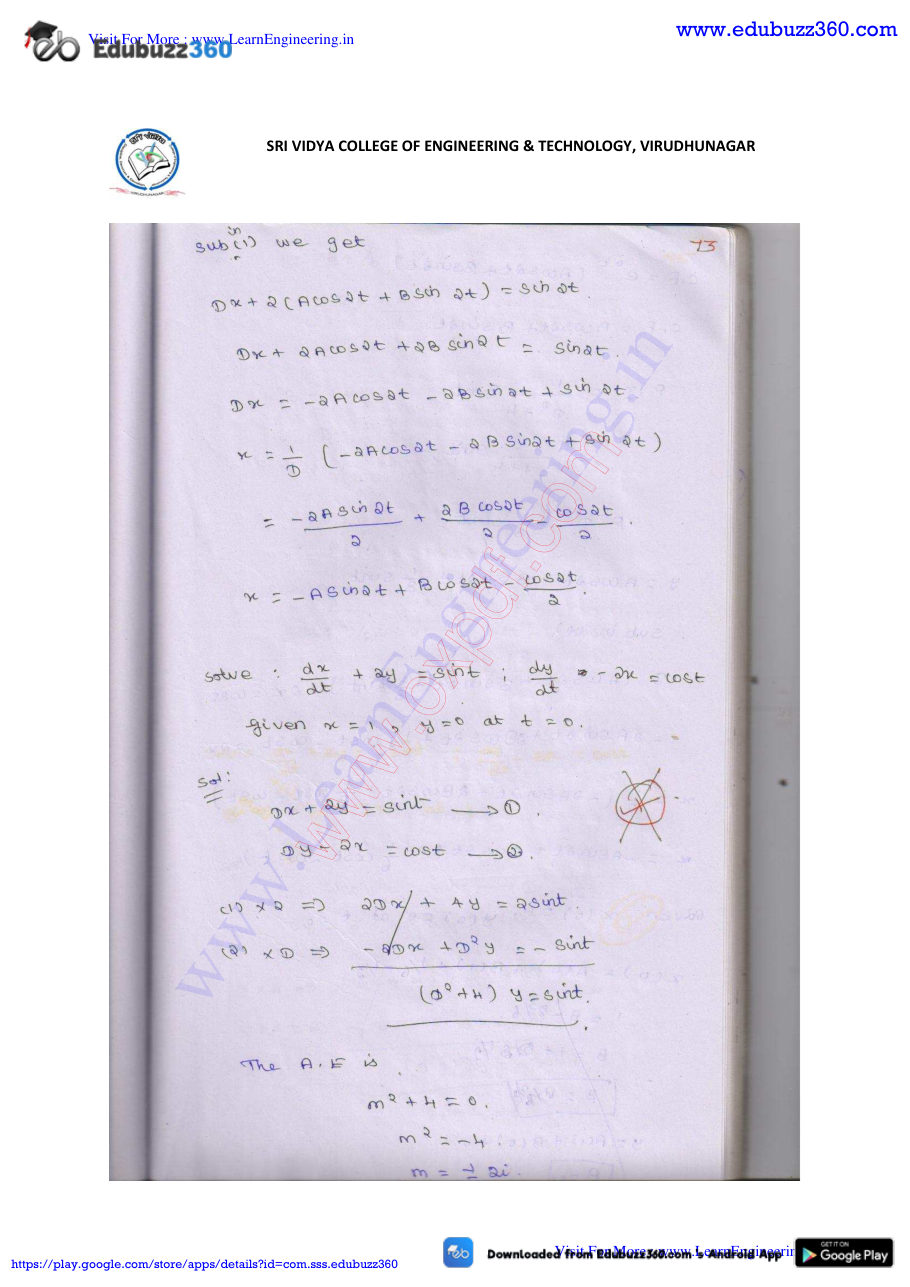 Visit For More : www.LearnEngineering.in
Edubuzz360
www.edubuzz360.com
SRI VIDYA COLLEGE OF ENGINEERING & TECHNOLOGY, VIRUDHUNAGAR
73
sub in (1) we get
Dx + 2(A cos2t + B sin 2t) = sin 2t.
Dx + 2A cos2t + 2B sin2t = sin2t.
Dx = -2A cos2t - 2B sin2t + sin 2t
x = 1/D (-2A cos2t - 2B sin2t + sin 2t)
= -2A sin 2t/2 + 2B cos2t/2 - cos2t/2.
x = -A sin2t + B cos2t - cos2t/2.
solve : dx/dt + 2y = sint ; dy/dt - 2x = cost
given x = 1, y = 0 at t = 0.
Sol:
Dx + 2y = sint → ①.
Dy - 2x = cost → ②.
(1) × 2 ⇒ 2Dx + 4y = 2sint.
(2) × D ⇒ -2Dx + D²y = - sint
(D² + 4) y = sint.
The A.E is.
m² + 4 = 0.
m² = -4
m = ± 2i.
www.LearnEngineering.in
www.oxpdf.com
https://play.google.com/store/apps/details?id=com.sss.edubuzz360
Downloaded from Edubuzz360.com's Android App
Visit For More : www.LearnEngineerin
GET IT ON
Google Play